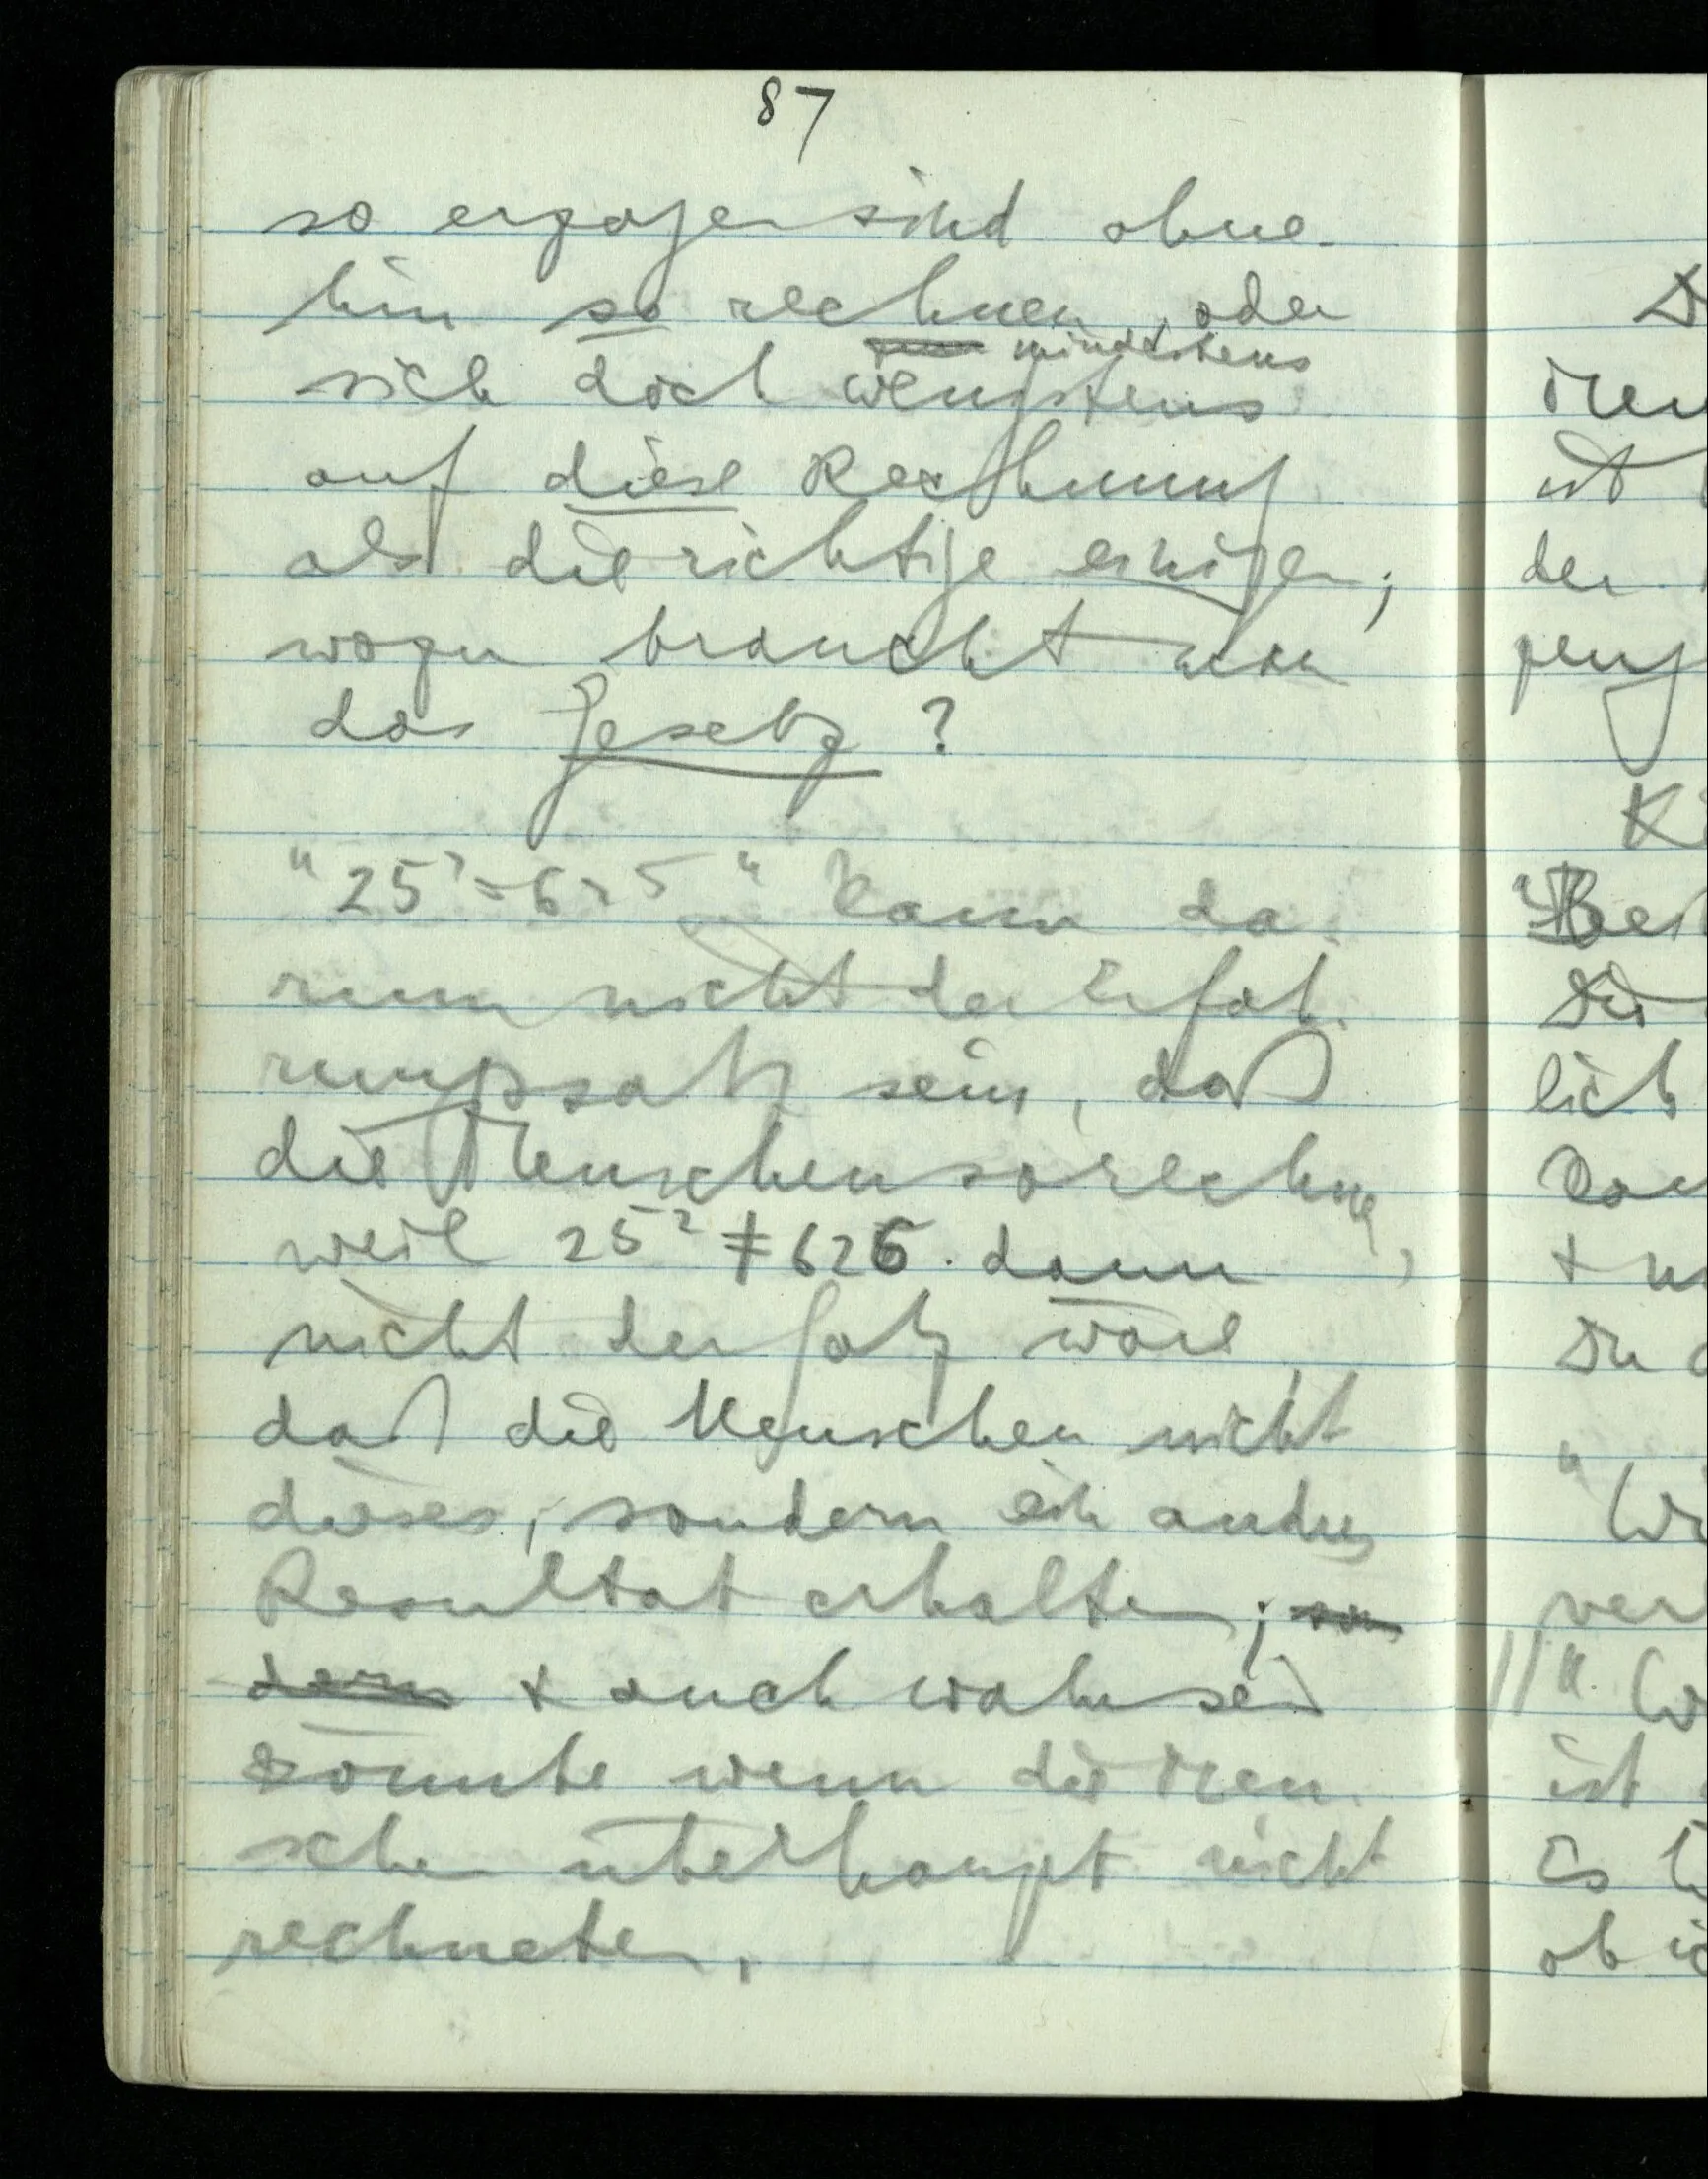 87
so erzogen sind ohne-
hin so rechnen, oder
mindestens
sich doch wenigstens
auf diese Rechnung
als die richtige einigen;
wozu braucht man
das Gesetz?
"25²=625" kann da-
rum nicht der Erfah-
rungssatz sein, daß
die Menschen so rechnen,
weil 25² ≠ 626 dann
nicht der Satz wäre,
daß die Menschen nicht
dieses, sondern ein andres
Resultat erhalten; son
dern & auch wahr sein
könnte wenn die Men-
schen überhaupt nicht
rechneten.
D
Men
ist
der
K
lich
& 
Du
"
ver
ist
Es
ob